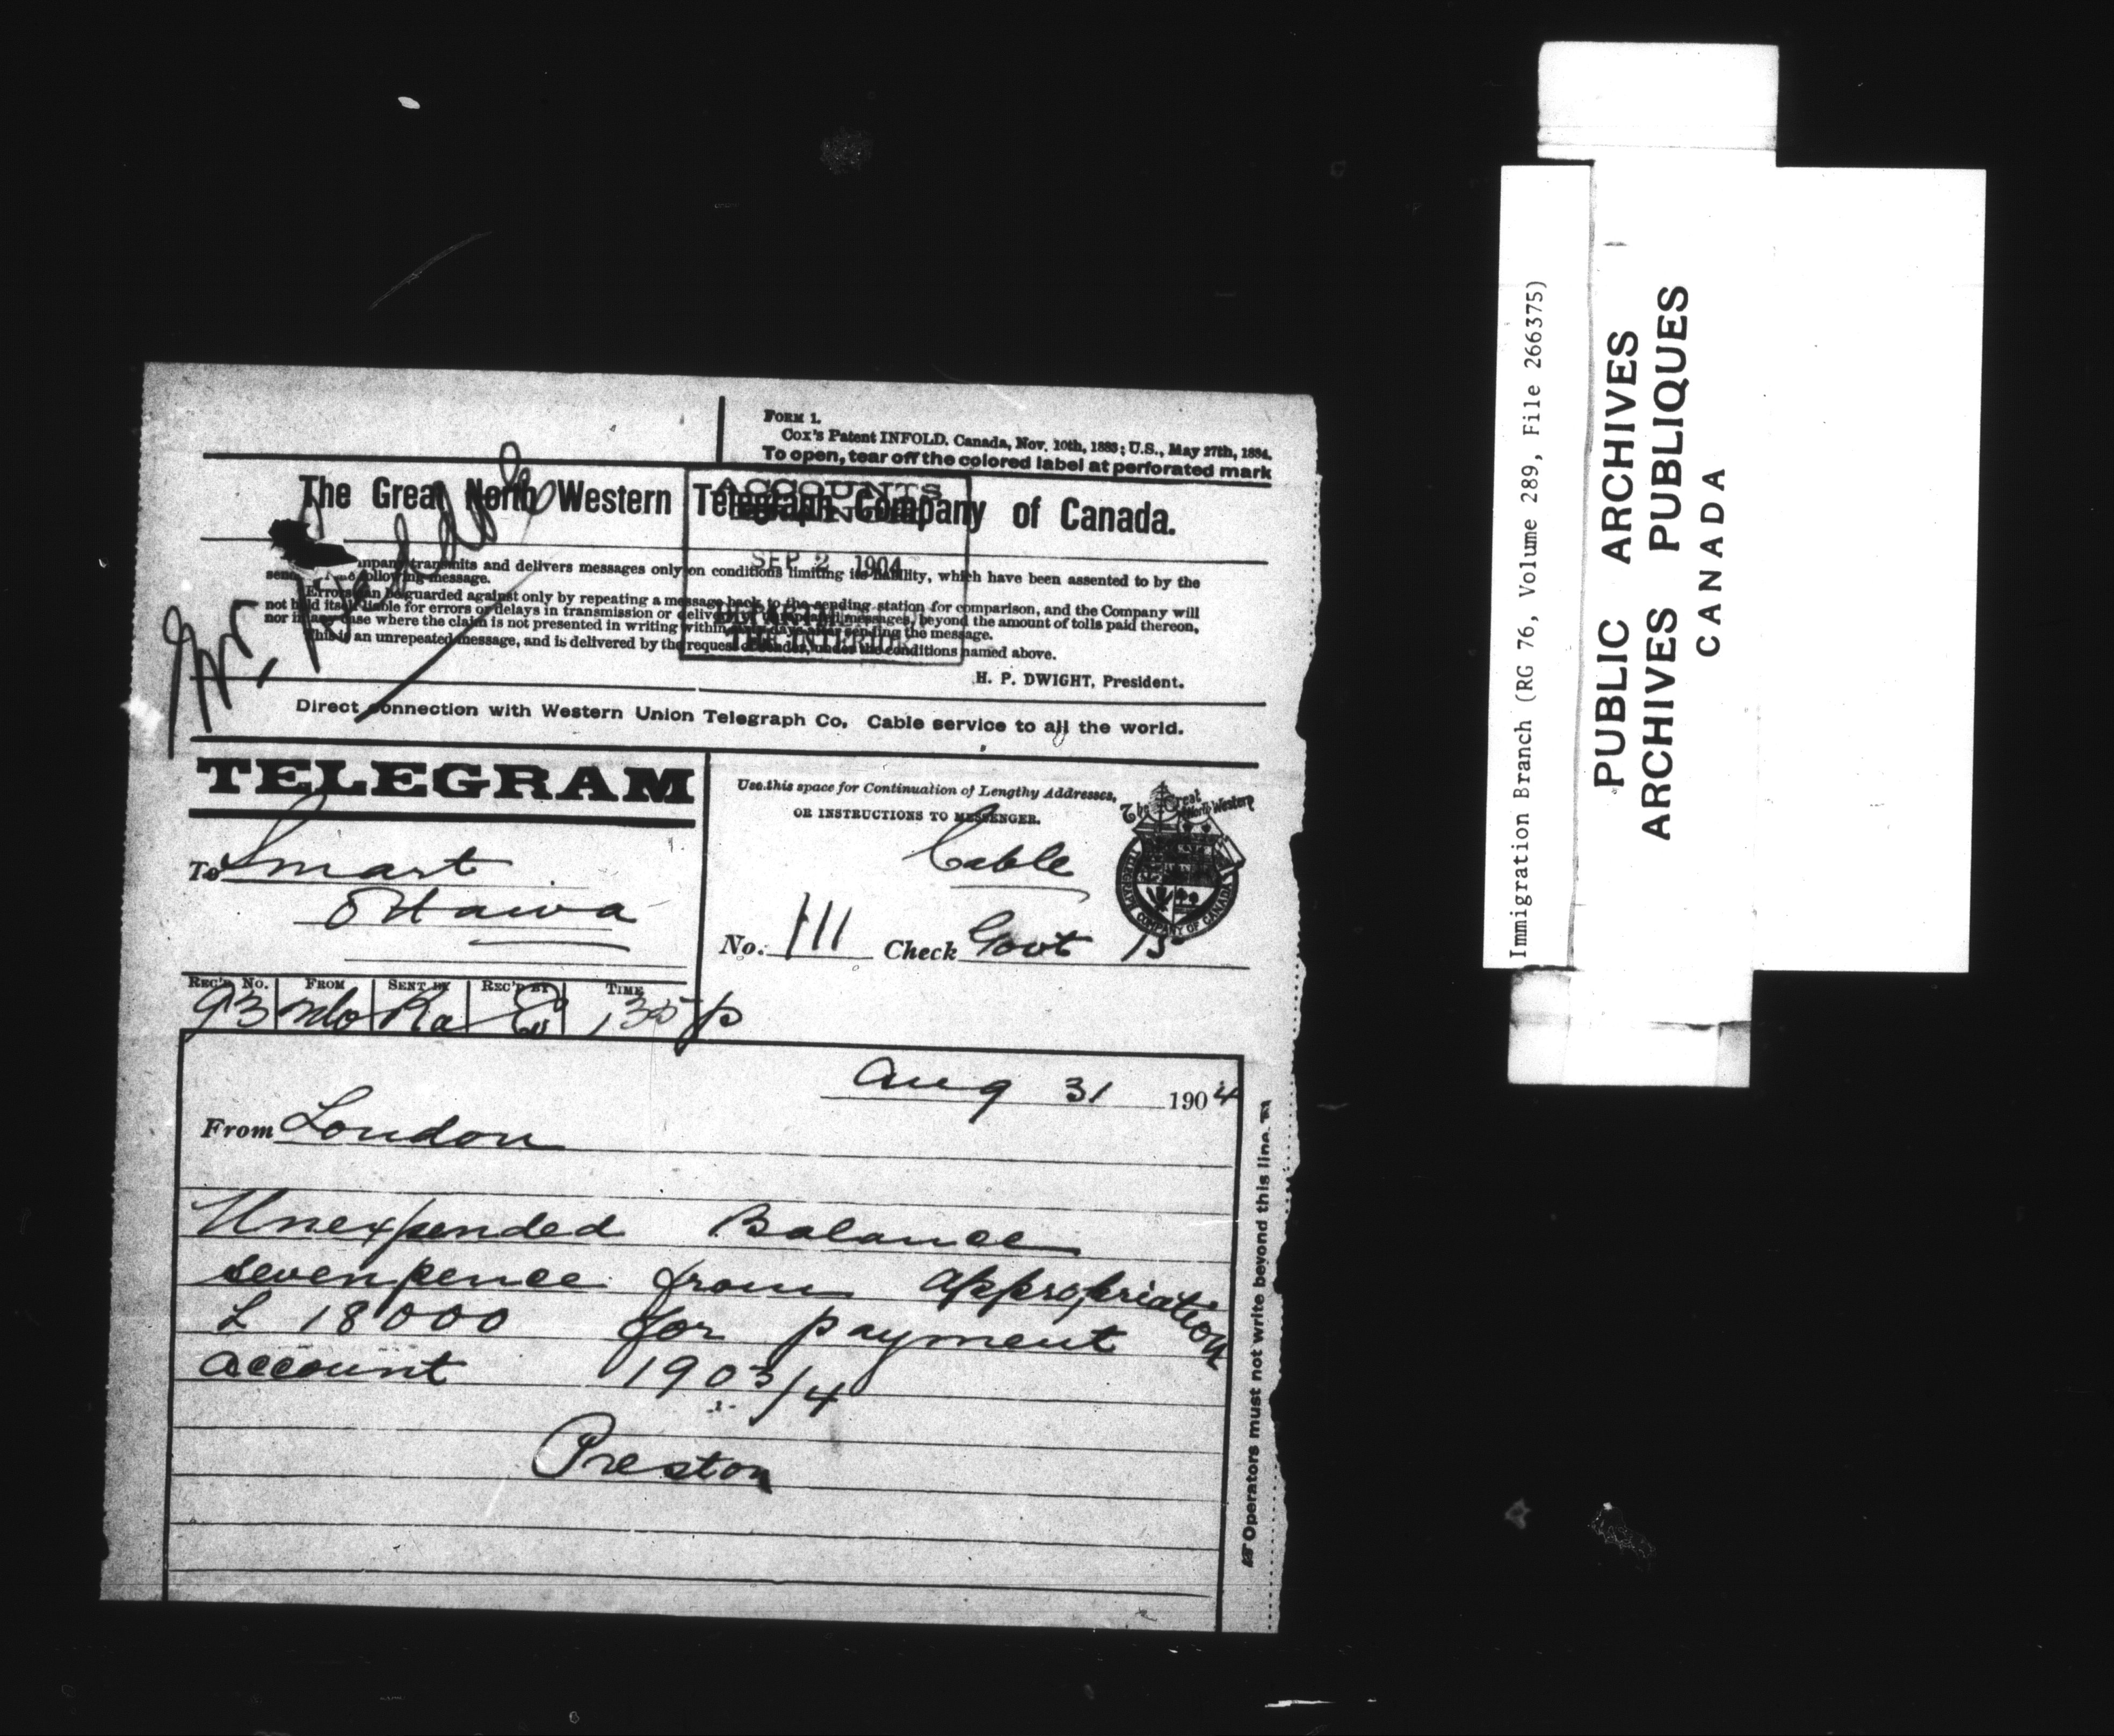 FORM 1.
Cox's Patent INFOLD. Canada, Nov. 10th, 1883; U.S., May 27th, 1884.
To open, tear off the colored label at perforated mark
The Great North Western Telegraph Company of Canada.
ACCOUNTS
SEP 2 1904
THE INTERIOR
mpany transmits and delivers messages only on conditions limiting its liability, which have been assented to by the
following message.
Errors can be guarded against only by repeating a message back to the sending station for comparison, and the Company will
not hold itself liable for errors or delays in transmission or delivery of unrepeated messages, beyond the amount of tolls paid thereon,
nor in any case where the claim is not presented in writing within days after sending the message.
This is an unrepeated message, and is delivered by the request of sender, under the conditions named above.
H. P. DWIGHT, President.
Mr,
Direct connection with Western Union Telegraph Co. Cable service to all the world.
TELEGRAM
Use this space for Continuation of Lengthy Addresses,
OR INSTRUCTIONS TO MESSENGER.
The Great North Western
TELEGRAPH COMPANY OF CANADA
To Smart
Ottawa
Cable
No. 111 Check Govt 15
REC'D NO. FROM SENT BY REC'D BY TIME
93 Ra 135 p
Aug 31 1904
From London
Unexpended Balance
seven pence from appropriation
£ 18000 for payment
account 1903/4
Preston
Operators must not write beyond this line.
Immigration Branch (RG 76, Volume 289, File 266375)
PUBLIC ARCHIVES
ARCHIVES PUBLIQUES
CANADA